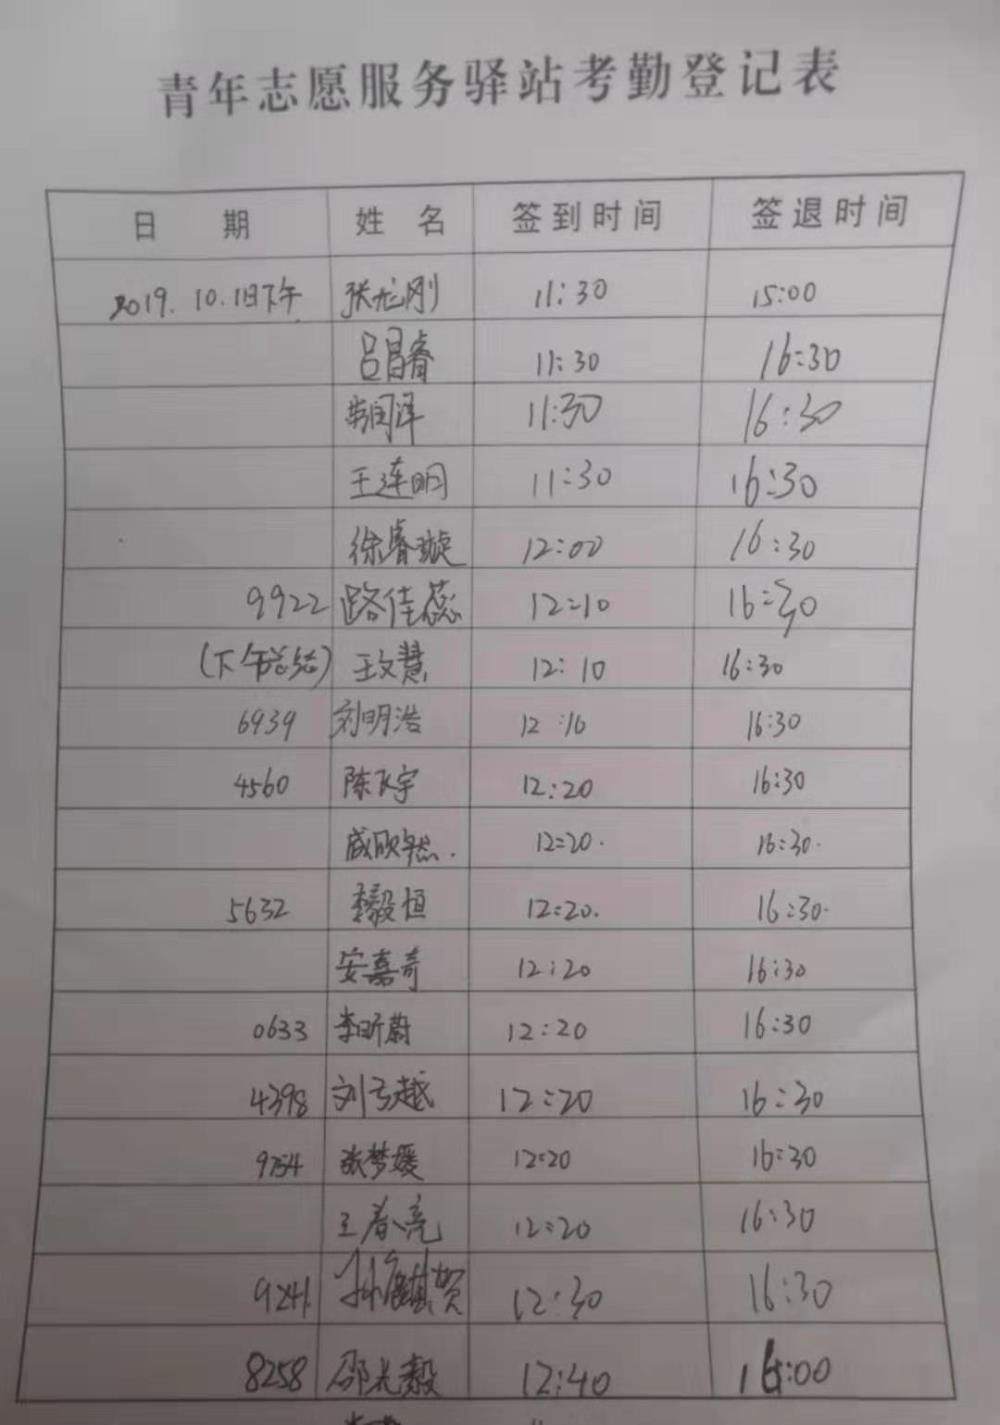 青年志愿服务驿站考勤登记表
日 期 姓 名 签到时间 签退时间
2019.10.1日下午 张龙刚 11:30 15:00
吕昌睿 11:30 16:30
11:30 16:30
王连明 11:30 16:30
徐睿璇 12:00 16:30
9922 路佳蕊 12:10 16:30
(下午总结) 王文慧 12:10 16:30
6939 刘明浩 12:10 16:30
4560 陈飞宇 12:20 16:30
戚欣然. 12:20. 16:30.
5632 李毅恒 12:20. 16:30.
安嘉奇 12:20 16:30
0633 李昕蔚 12:20 16:30
4398 刘弓越 12:20 16:30
9754 张梦媛 12:20 16:30
王春亮 12:20 16:30
9241 孙麒贺 12:30 16:30
8258 邵光毅 12:40 16:00